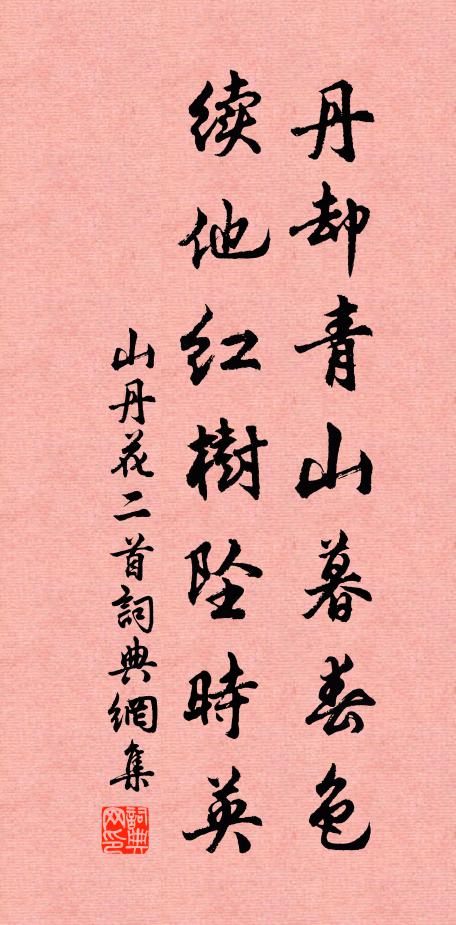 丹却青山暮春色
续他红樹坠時英
山丹花二首詞典網集
詞典网印